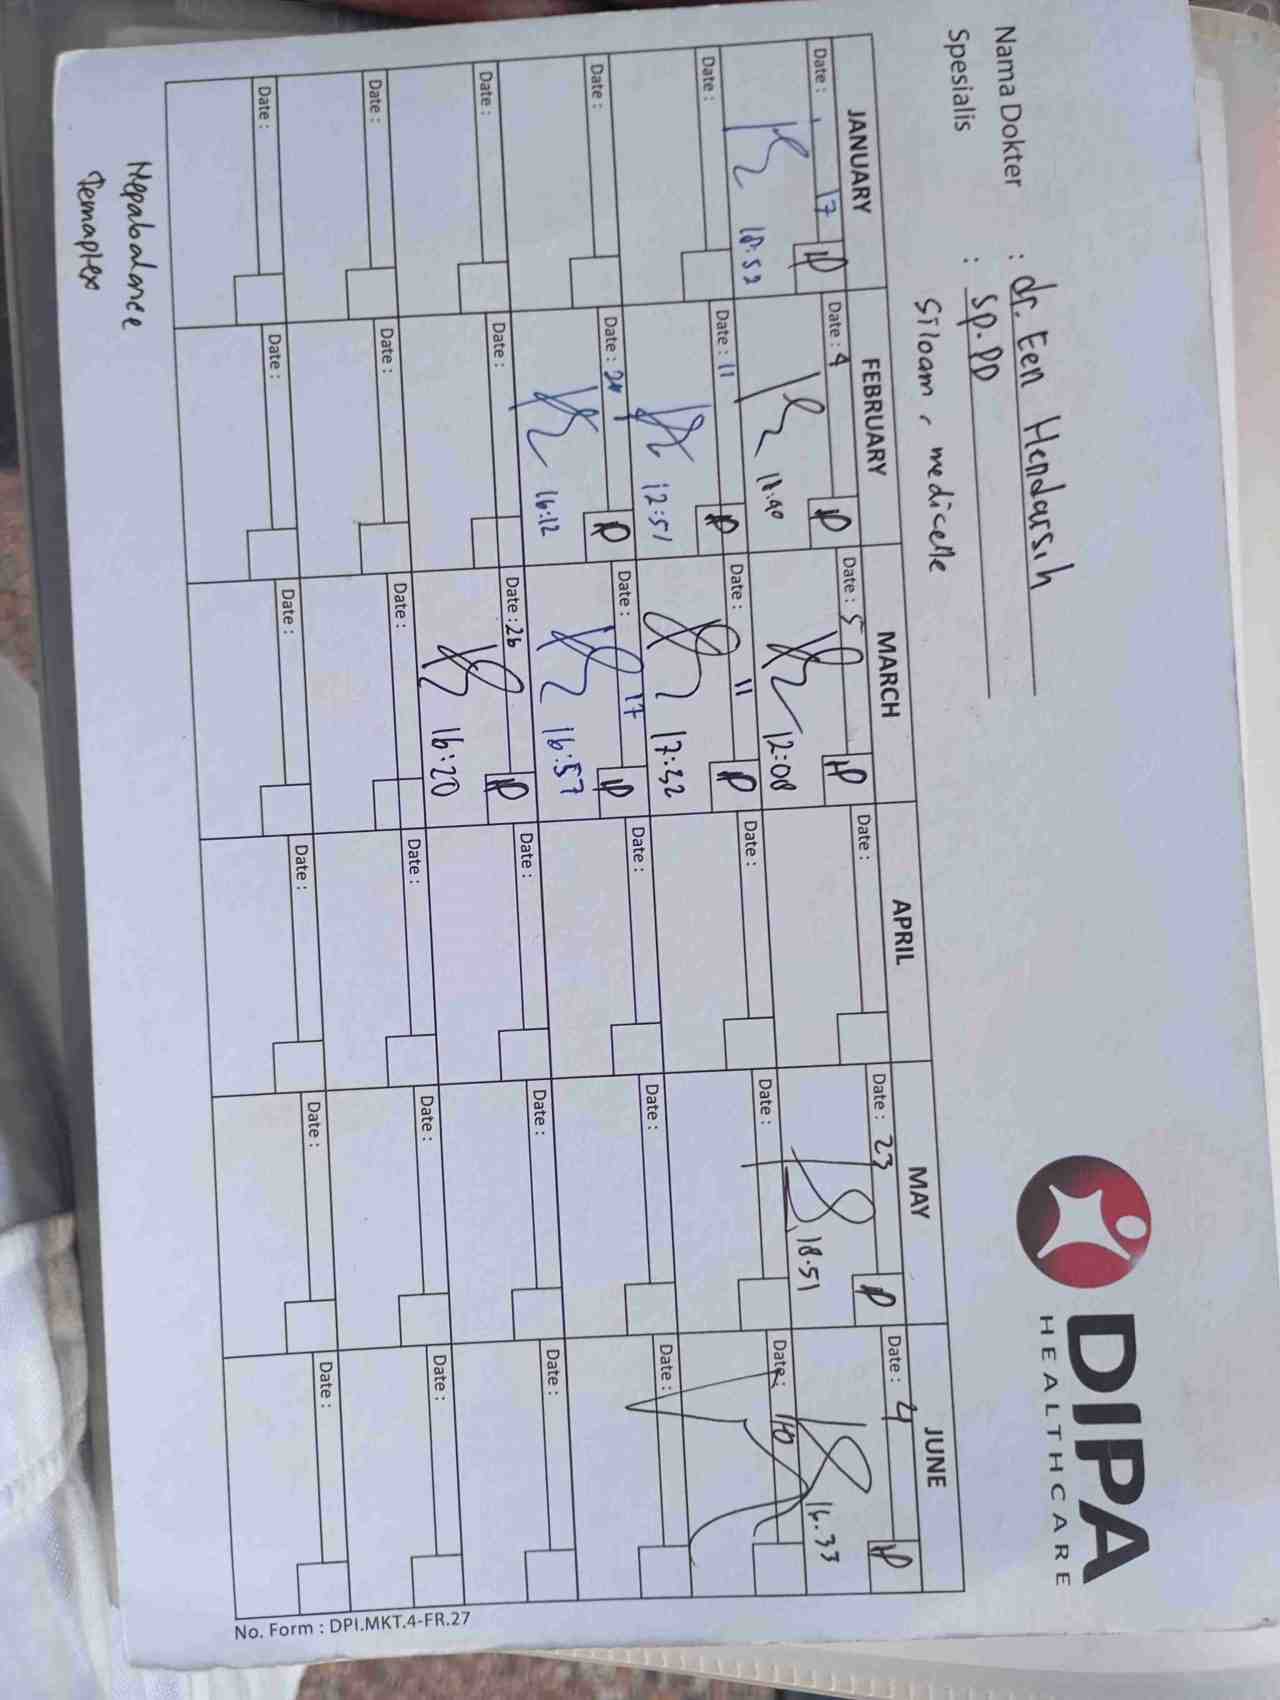 DIPA
HEALTHCARE
Nama Dokter : dr. Een Hendarsih
Spesialis : Sp. PD
Siloam, medicelle
JANUARY FEBRUARY MARCH APRIL MAY JUNE
Date : 17 Date : 4 Date : 5 Date : Date : 23 Date : 4
18:52 18:40 12:08 18.51 16.33
Date : Date : 11 Date : 11 Date : Date : Date : 10
12:51 17:32
Date : Date : Date : 17 Date : Date : Date :
16:12 16:57
Date : Date : Date : 26 Date : Date : Date :
16:20
Date : Date : Date : Date : Date : Date :
Date : Date : Date : Date : Date : Date :
No. Form : DPI.MKT.4-FR.27
Hepabalance
Temaplex